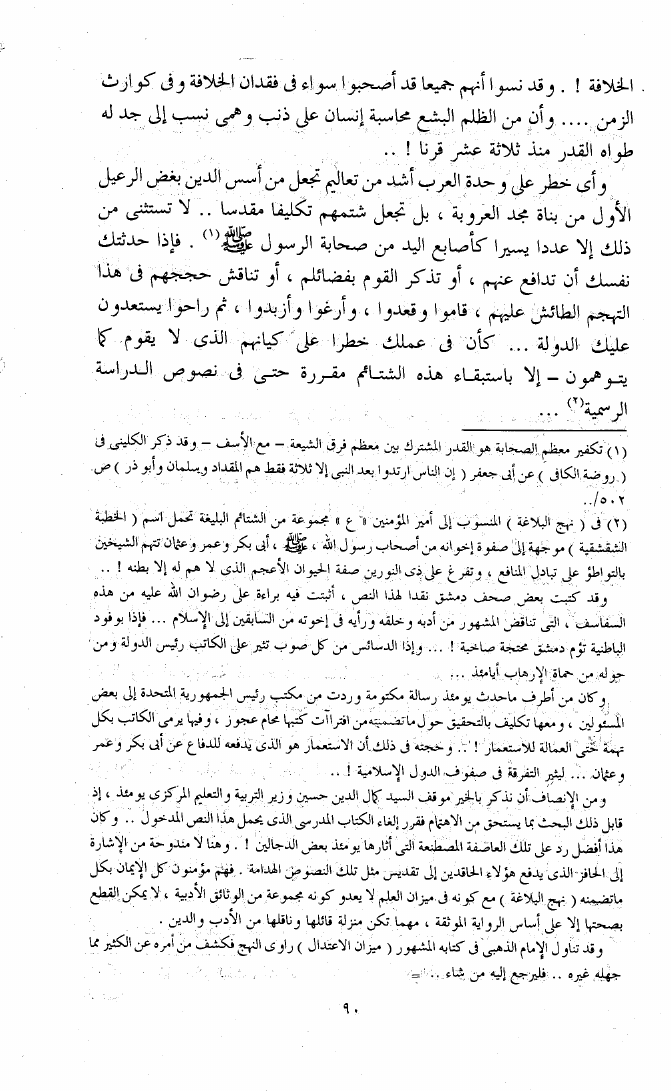 الخلافة ! . وقد نسوا أنهم جميعا قد أصحبوا سواء فى فقدان الخلافة وفى كوارث
الزمن .... وأن من الظلم البشع محاسبة إنسان على ذنب وهمى نسب إلى جد له
طواه القدر منذ ثلاثة عشر قرنا ! ..
وأى خطر على وحدة العرب أشد من تعاليم تجعل من أسس الدين بغض الرعيل
الأول من بناة مجد العروبة ، بل تجعل شتمهم تكليفا مقدسا .. لا تستثنى من
ذلك إلا عددا يسيرا كأصابع اليد من صحابة الرسول ﷺ (١) . فإذا حدثتك
نفسك أن تدافع عنهم ، أو تذكر القوم بفضائلم ، أو تناقش حججهم فى هذا
التهجم الطائش عليهم ، قاموا وقعدوا ، وأرغوا وأزبدوا ، ثم راحوا يستعدون
عليك الدولة ... كأن فى عملك خطرا على كيانهم الذى لا يقوم كما
يتوهمون – إلا باستبقاء هذه الشتائم مقررة حتى فى نصوص الدراسة
الرسمية (٢) ...
(١) تكفير معظم الصحابة هو القدر المشترك بين معظم فرق الشيعة – مع الأسف – وقد ذكر الكلينى فى
( روضة الكافى ) عن أبى جعفر ( إن الناس ارتدوا بعد النبى إلا ثلاثة فقط هم المقداد وسلمان وأبو ذر ) ص
٥٠٢/..
(٢) فى ( نهج البلاغة ) المنسوب إلى أمير المؤمنين « ع » مجموعة من الشتائم البليغة تحمل اسم ( الخطبة
الشقشقية ) موجهة إلى صفوة إخوانه من أصحاب رسول الله ، ﷺ ، أبى بكر وعمر وعثمان تتهم الشيخين
بالتواطؤ على تبادل المنافع ، وتفرغ على ذى النورين صفة الحيوان الأعجم الذى لا هم له إلا بطنه ! ..
وقد كتبت بعض صحف دمشق نقدا لهذا النص ، أثبتت فيه براءة على رضوان الله عليه من هذه
السفاسف ، التى تناقض المشهور من أدبه وخلقه ورأيه فى إخوته من السابقين إلى الإسلام ... فإذا بوفود
الباطنية تؤم دمشق محتجة صاخبة ! ... وإذا الدسائس من كل صوب تثير على الكاتب رئيس الدولة ومن
حوله من حماة الإرهاب أيامئذ ...
وكان من أطرف ماحدث يومئذ رسالة مكتومة وردت من مكتب رئيس الجمهورية المتحدة إلى بعض
المسئولين ، ومعها تكليف بالتحقيق حول ماتضمنته من افترآت كتبها محام عجوز ، وفيها يرمى الكاتب بكل
تهمة حتى العمالة للاستعمار ! .. وحجته فى ذلك أن الاستعمار هو الذى يدفعه للدفاع عن أبى بكر وعمر
وعثمان ... ليثير التفرقة فى صفوف الدول الإسلامية ! ..
ومن الإنصاف أن نذكر بالخير موقف السيد كمال الدين حسين وزير التربية والتعليم المركزى يومئذ ، إذ
قابل ذلك البحث بما يستحق من الاهتمام فقرر إلغاء الكتاب المدرسى الذى يحمل هذا النص المدخول .. وكان
هذا أفضل رد على تلك العاصفة المصطنعة التى أثارها يومئذ بعض الدجالين ! . وهنا لا مندوحة من الإشارة
إلى الحافز الذى يدفع هؤلاء الحاقدين إلى تقديس مثل تلك النصوص الهدامة . فهم مؤمنون كل الإيمان بكل
ماتضمنه ( نهج البلاغة ) مع كونه فى ميزان العلم لا يعدو كونه مجموعة من الوثائق الأدبية ، لا يمكن القطع
بصحتها إلا على أساس الرواية الموثقة ، مهما تكن منزلة قائلها وناقلها من الأدب والدين .
وقد تناول الإمام الذهبى فى كتابه المشهور ( ميزان الاعتدال ) راوى النهج فكشف من أمره عن الكثير مما
جهله غيره .. فليرجع إليه من شاء ..
٩٠